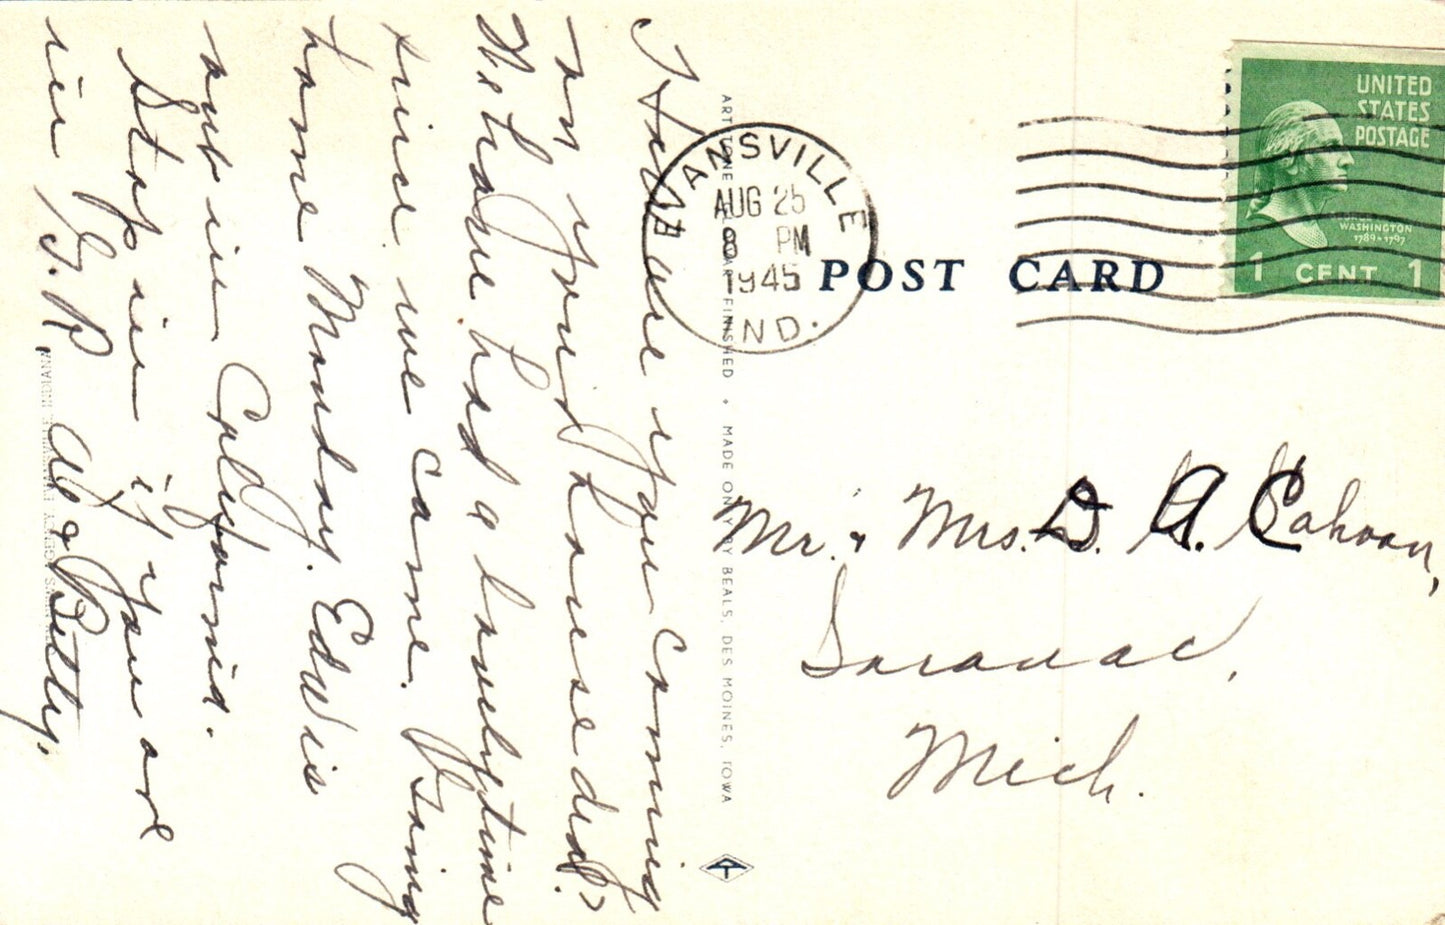 How are you coming
on your house
We have had a lovely time
since we came. Going
home Monday. Ed W is
out in California.
Stop in if you are
in G. R. & Betty.
ART-TONE FINISHED • MADE ONLY BY BEALS, DES MOINES, IOWA
EVANSVILLE
AUG 25
8 PM
1945
IND.
POST CARD
UNITED
STATES
POSTAGE
WASHINGTON
1789-1797
1 CENT 1
Mr. & Mrs. D. A. Cahoon,
Saranac,
Mich.